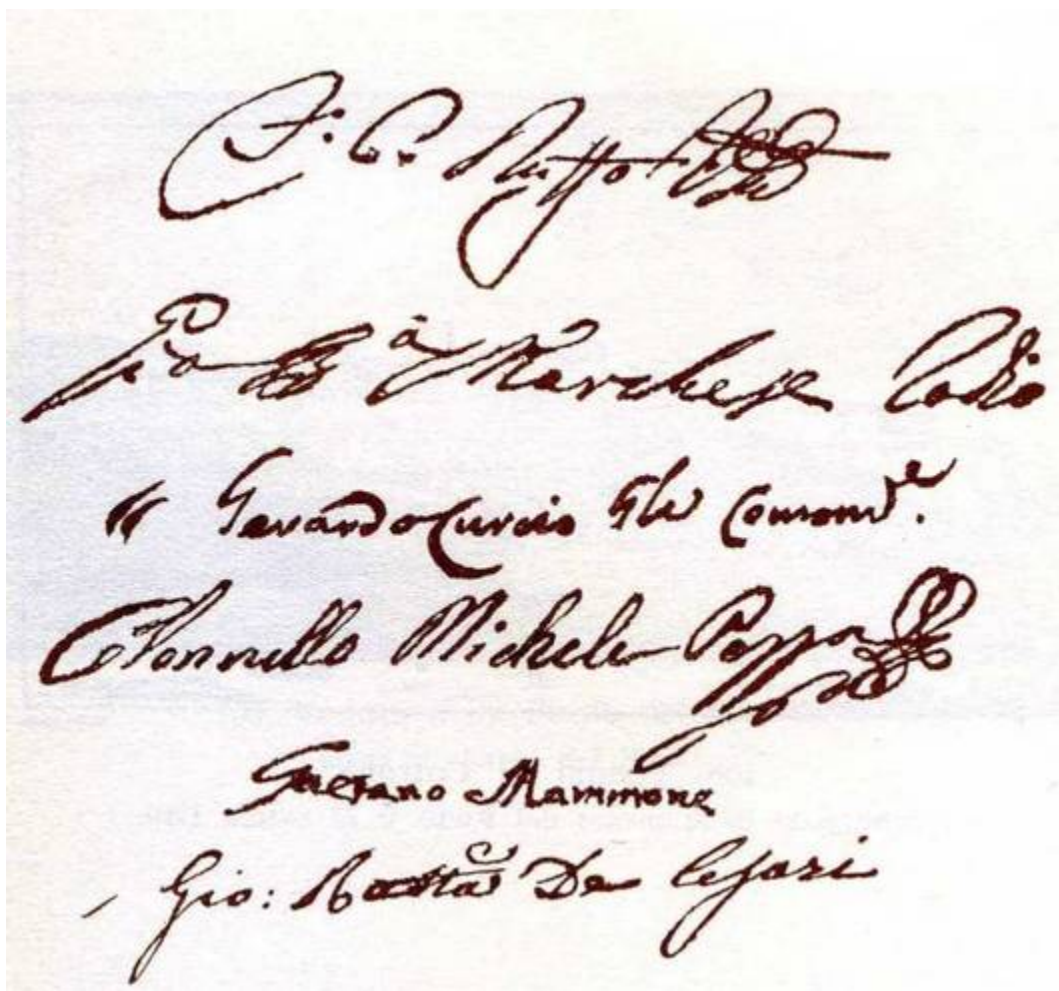 F: C. Ruffo
Gio Ba Marchese Rodio
" Gerardo Curcio Gle Comomde.
Colonnello Michele Pezza
Gaetano Mammone
Gio: Batta De Cesari